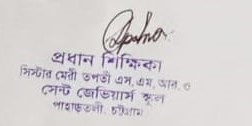 প্রধান শিক্ষিকা
সিস্টার মেরী তপতী এস, এম, আর, এ
সেন্ট জেভিয়ার্স স্কুল
পাহাড়তলী, চট্টগ্রাম